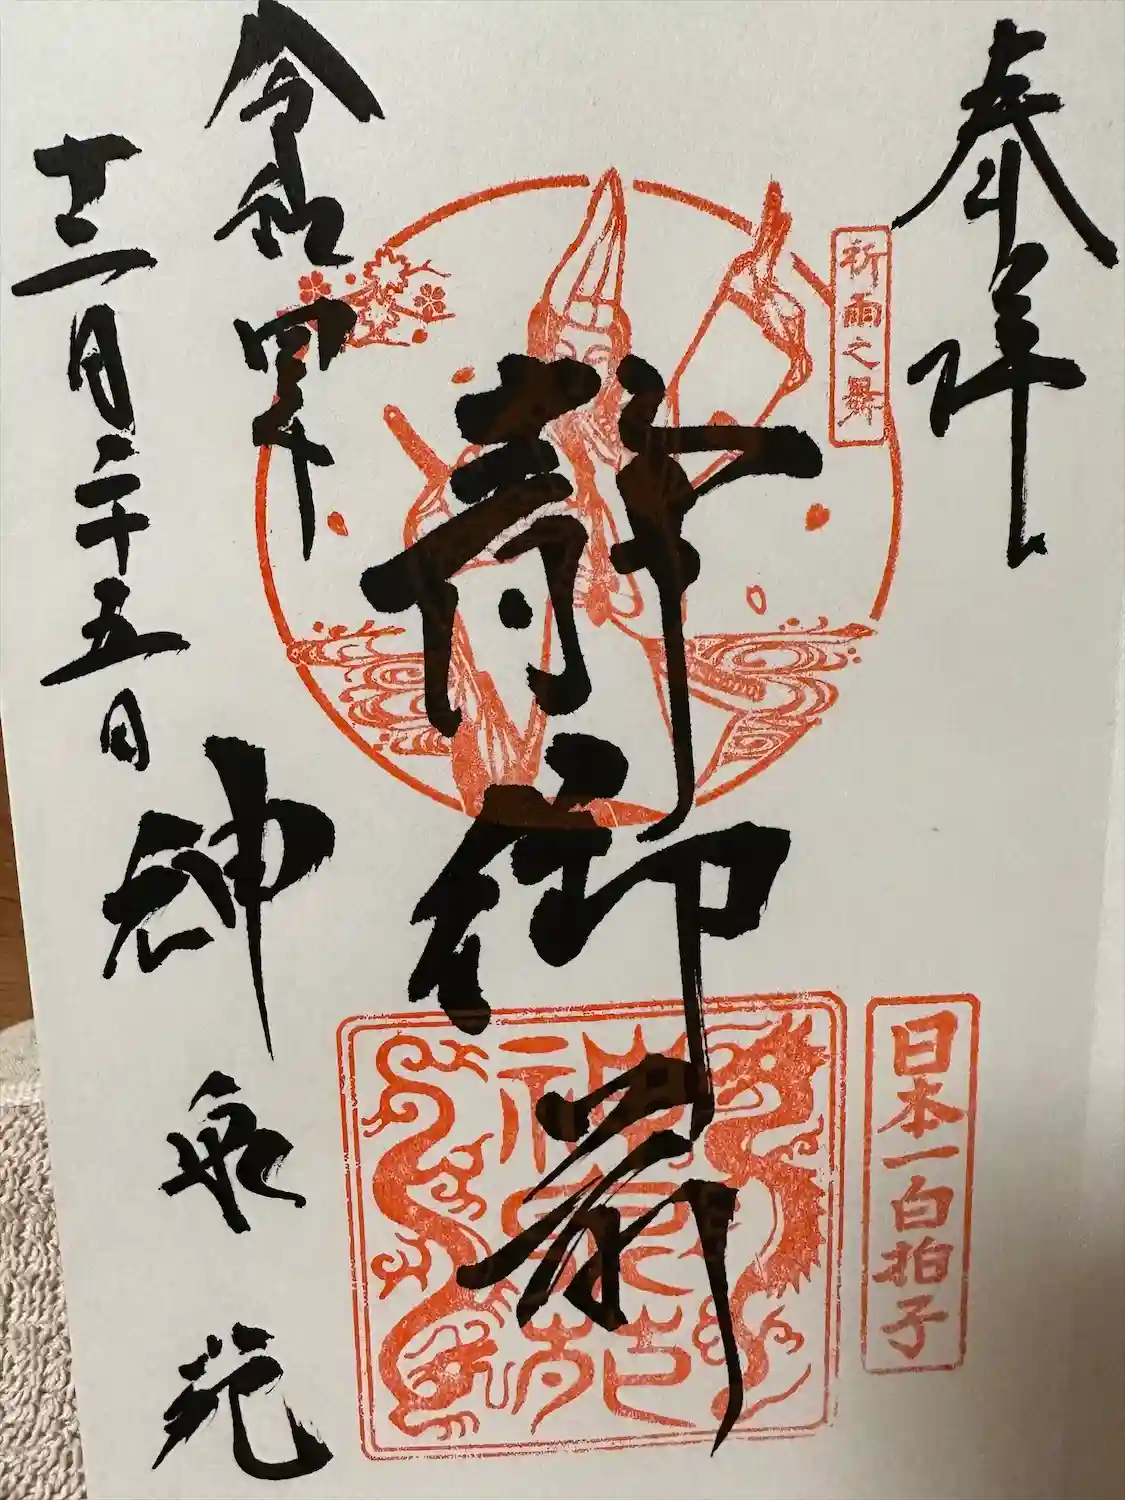 奉拝
祈雨之舞
日本一白拍子
静御前
令和四年
十二月二十五日
神泉苑